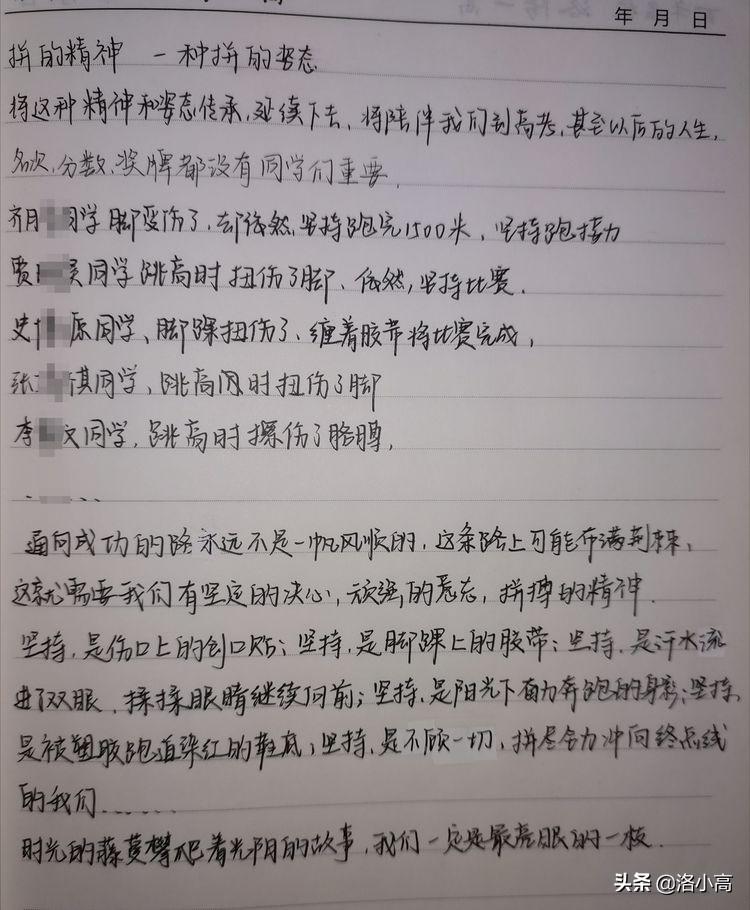 年 月 日
拼的精神 一种拼的姿态
将这种精神和姿态传承,延续下去、将陪伴我们到高考,甚至以后的人生,
名次,分数,奖牌都没有同学们重要,
齐月 同学脚受伤了,却依然,坚持跑完1500米,坚持跑接力
贾 昊同学跳高时扭伤了脚、依然,坚持比赛.
史 原同学、脚踝扭伤了、缠着胶带将比赛完成,
张 祺同学、跳高 时扭伤了脚
李 文同学,跳高时擦伤了胳膊,
通向成功的路永远不是一帆风顺的,这条路上可能布满荆棘,
这就需要我们有坚定的决心,顽强的意态,拼搏的精神.
坚持,是伤口上的创口贴;坚持,是脚踝上的胶带;坚持,是汗水流
进了双眼,揉揉眼睛继续向前;坚持,是阳光下奋力奔跑的身影;坚持,
是被塑胶跑道染红的鞋底;坚持,是不顾一切,拼尽全力冲向终点线
的我们......
时光的藤蔓攀爬着光阴的故事,我们一定是最亮眼的一枝.
头条 @洛小高